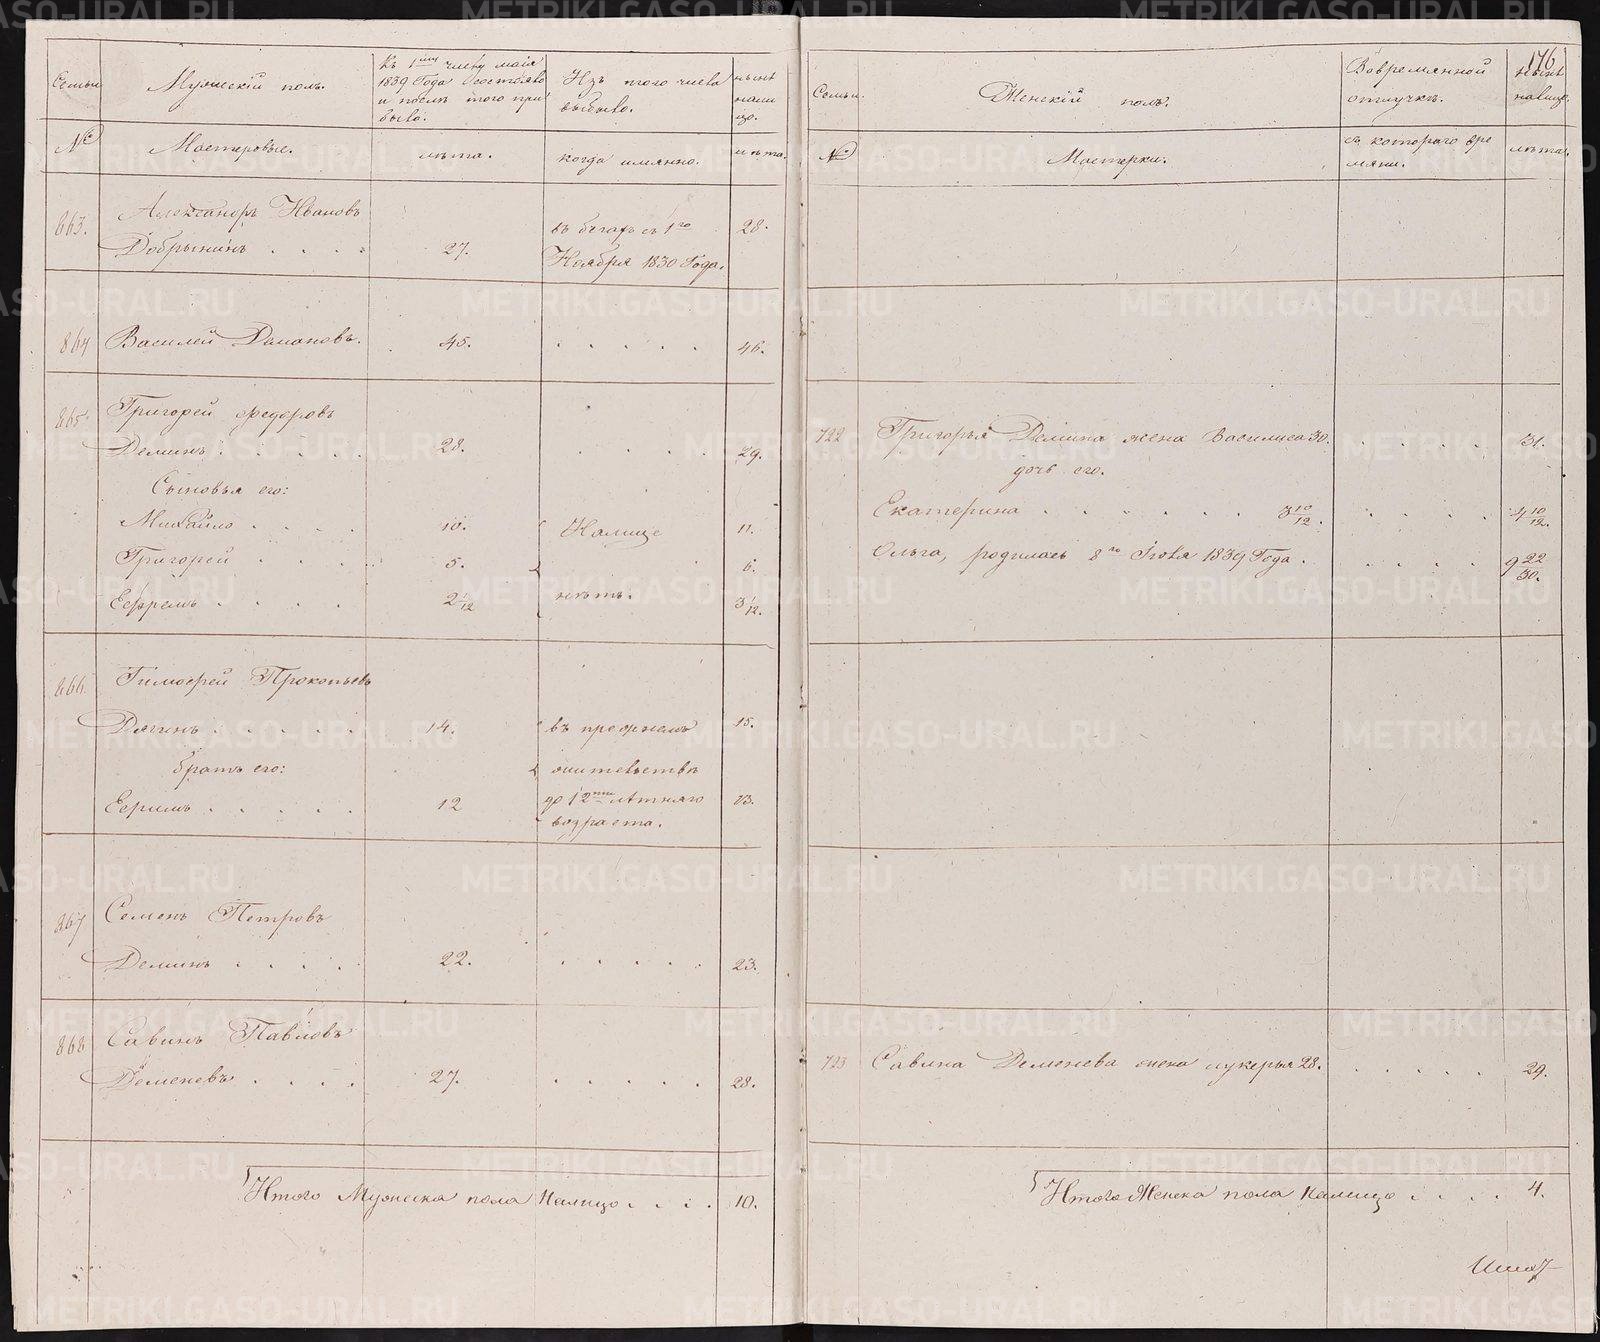 176
Семьи
Мужескій полъ.
Къ 1му числу маія
1839 Года состояло
и послѣ того при
было.
Изъ того числа
выбыло.
нынѣ
нали
цо.
№
Мастеровые.
лѣта.
когда имянно.
лѣта.
863.
Александръ Ивановъ
Добрынинъ . . . .
27.
въ бѣгахъ съ 1го
Ноября 1830 Года.
28.
864
Василей
45.
46.
865.
Григорей Федоровъ
Деминъ . . . . .
28.
29.
Сыновья его:
Михайло . . . .
10.
Налице
11.
Григорей . . . .
5.
6.
Ефремъ . . . .
2 1/12
нѣтъ.
3 1/12.
866.
Тимофей Прокопьевъ
Дягинъ . . . . .
14.
въ прежнемъ
15.
братъ его:
жительствѣ
Ефимъ . . . . .
12
до 12ти лѣтняго
13.
возраста.
867
Семенъ Петровъ
Деминъ . . . .
22.
23.
868
Савинъ Павловъ
Деменевъ . . . .
27.
28.
Итого Мужеска пола Налицо . . . .
10.
Семьи.
Женскій полъ.
Вовремянной
отлучкѣ.
нынѣ
налицо.
№
Мастерки.
съ котораго вре
мяни.
лѣта.
722
Григорья Демина жена Василиса 30.
31.
дочь его.
Екатерина . . . . . . 3 10/12.
4 10/12.
Ольга, родилась 8го Іюля 1839 Года.
9 22/30.
723
Савина Деменева жена лукерья 28.
29.
Итого Женска пола Налицо . . . .
4.